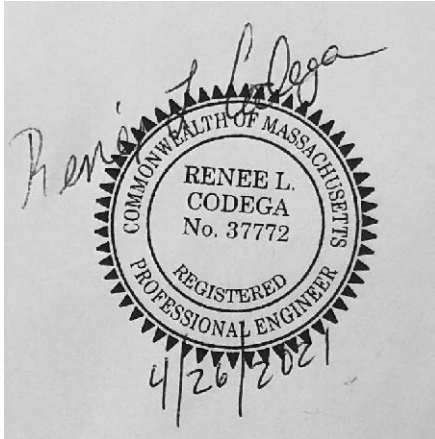 Renée L Codega
COMMONWEALTH OF MASSACHUSETTS
RENEE L.
CODEGA
No. 37772
REGISTERED
PROFESSIONAL ENGINEER
4/26/2021